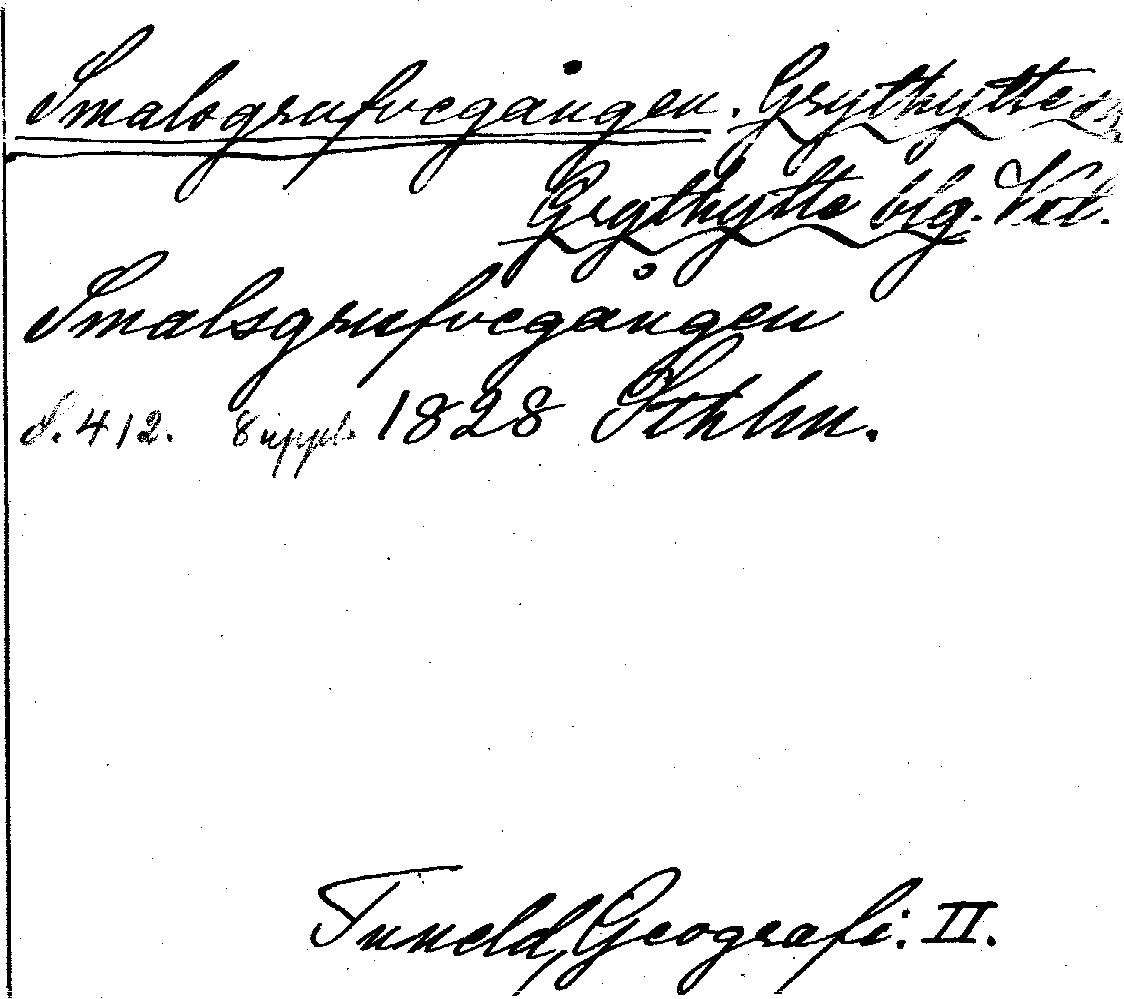 Smalsgrufvegången. Grythytte sn,
Grythytte blg. Vstl.
Smalsgrufvegången
S. 412. Suppl. 1828 Sthlm.
Tuneld, Geografi. II.